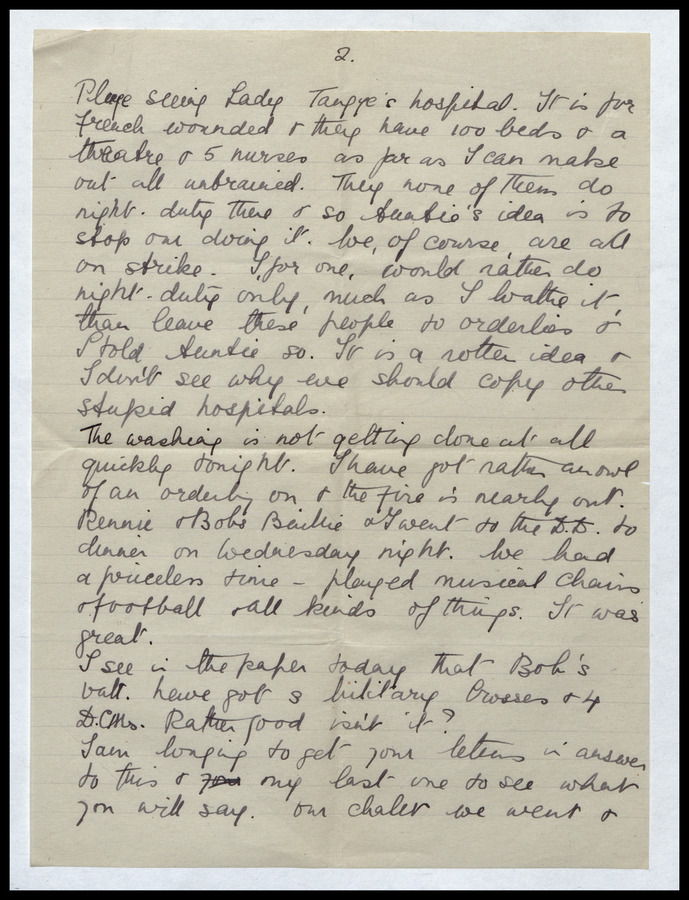 2.
Plage seeing Lady Tangye's hospital. It is for
french wounded & they have 100 beds & a
theatre & 5 nurses as far as I can make
out all untrained. They none of them do
night-duty there & so Auntie's idea is to
stop our doing it. We, of course, are all
on strike. I, for one, would rather do
night-duty only, much as I loathe it,
than leave these people to orderlies &
I told Auntie so. It is a rotten idea &
I don't see why we should copy other
stupid hospitals.
The washing is not getting done at all
quickly tonight. I have got rather an owl
of an orderly on & the fire is nearly out.
Rennie & Bobs Baillie & I went to the D.D. to
dinner on Wednesday night. We had
a priceless time - played musical chairs
& football & all kinds of things. It was
great.
I see in the paper today that Bob's
batt. have got 3 Military Crosses & 4
D.C.Ms. Rather good isn't it?
I am longing to get your letters in answer
to this & my last one to see what
you will say. Our chalet we went &